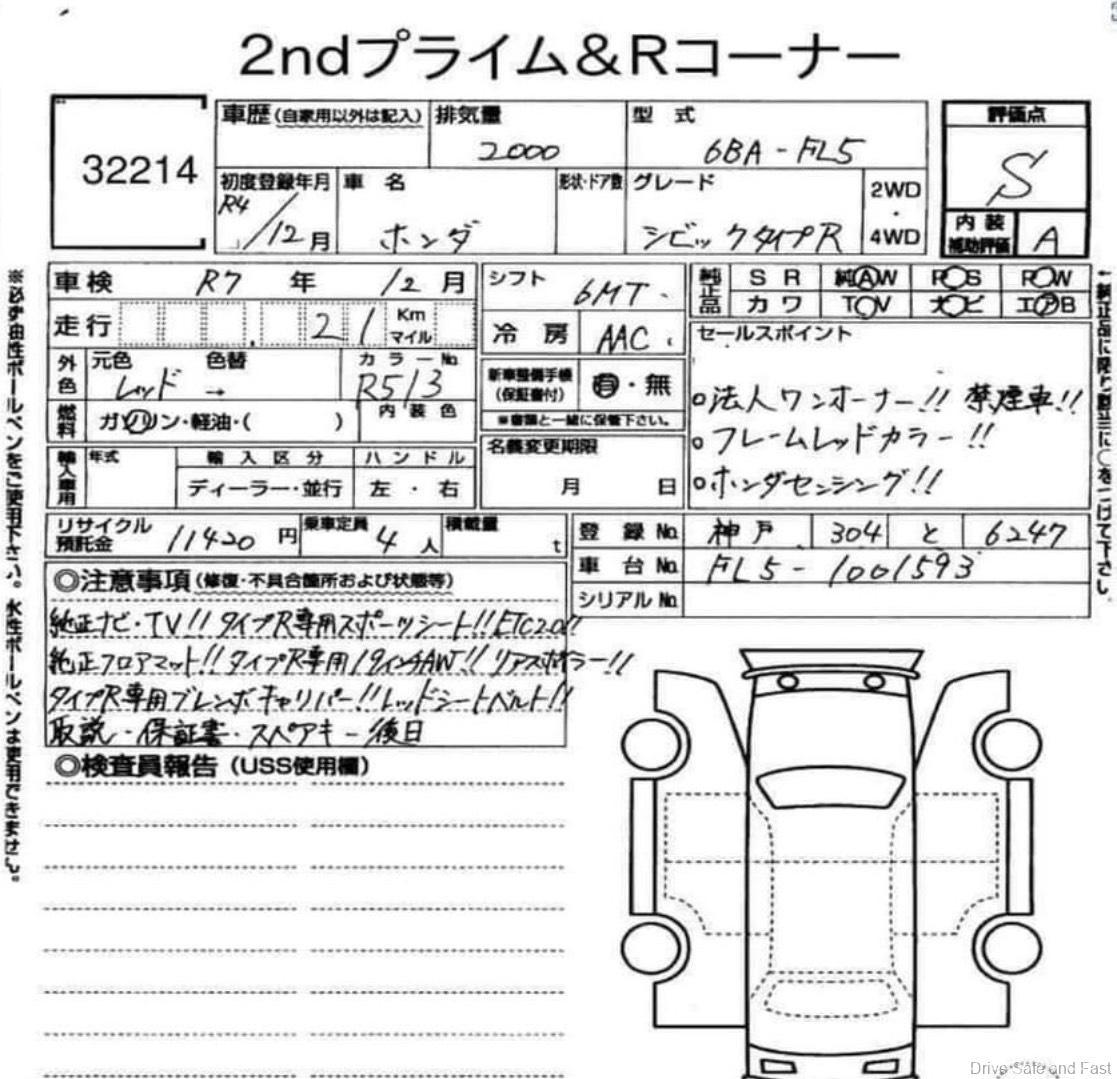 2ndプライム&Rコーナー
32214
車歴(自家用以外は記入) 排気量 型式 評価点
2000 6BA-FL5 S
初度登録年月 車名 形状・ドア数 グレード 2WD・4WD 内装補助評価
R4/12月 ホンダ シビックタイプR A
車検 R7年 12月 シフト 6MT 純正品 SR 純AW PS PW
カワ TV ナビ エアB
走行 21 Km マイル 冷房 AAC セールスポイント
外色 元色 色替 カラーNo.
レッド → R513
新車整備手帳(保証書付) 有・無
※書類と一緒に保管下さい。
燃料 ガソリン・軽油・( ) 内装色
○法人ワンオーナー!! 禁煙車!!
○フレームレッドカラー!!
○ホンダセンシング!!
輸入車用 年式 輸入区分 ハンドル
ディーラー・並行 左・右
名義変更期限
月 日
リサイクル預託金 11420円 乗車定員 4人 積載量 t
登録No. 神戸 304 と 6247
車台No. FL5-1001593
シリアルNo.
◎注意事項(修復・不具合箇所および状態等)
純正ナビ・TV!! タイプR専用スポーツシート!! ETC2.0!!
純正フロアマット!! タイプR専用19インチAW!! リアスポイラー!!
タイプR専用ブレンボキャリパー!! レッドシートベルト!!
取説・保証書・スペアキー後日
◎検査員報告(USS使用欄)
※必ず油性ボールペンをご使用下さい。水性ボールペンは使用できません。
Drive Safe and Fast